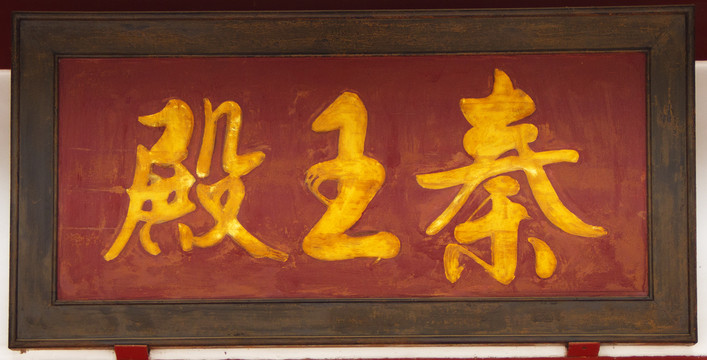 秦王殿